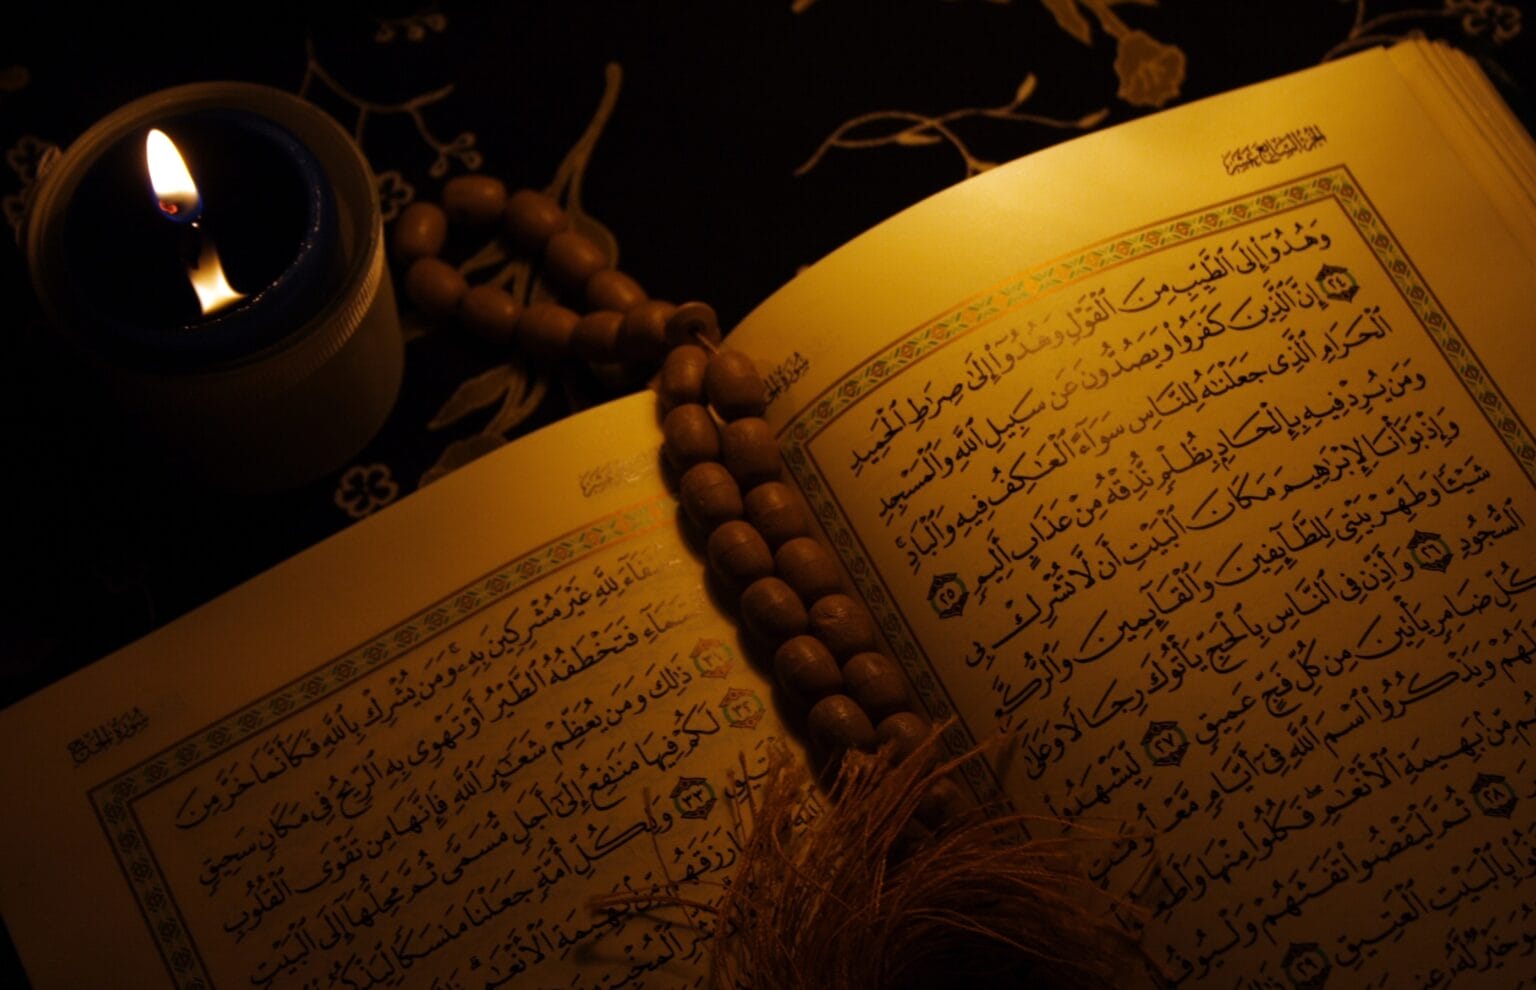 الجزء السابع عشر
وَهُدُوٓاْ إِلَى ٱلطَّيِّبِ مِنَ ٱلْقَوْلِ وَهُدُوٓاْ إِلَىٰ صِرَٰطِ ٱلْحَمِيدِ
٢٤ إِنَّ ٱلَّذِينَ كَفَرُواْ وَيَصُدُّونَ عَن سَبِيلِ ٱللَّهِ وَٱلْمَسْجِدِ
ٱلْحَرَامِ ٱلَّذِى جَعَلْنَٰهُ لِلنَّاسِ سَوَآءً ٱلْعَٰكِفُ فِيهِ وَٱلْبَادِ
وَمَن يُرِدْ فِيهِ بِإِلْحَادٍۭ بِظُلْمٍ نُّذِقْهُ مِنْ عَذَابٍ أَلِيمٍ ٢٥
وَإِذْ بَوَّأْنَا لِإِبْرَٰهِيمَ مَكَانَ ٱلْبَيْتِ أَن لَّا تُشْرِكْ بِى
شَيْـًٔا وَطَهِّرْ بَيْتِىَ لِلطَّآئِفِينَ وَٱلْقَآئِمِينَ وَٱلرُّكَّعِ
ٱلسُّجُودِ ٢٦ وَأَذِّن فِى ٱلنَّاسِ بِٱلْحَجِّ يَأْتُوكَ رِجَالًا وَعَلَىٰ
كُلِّ ضَامِرٍ يَأْتِينَ مِن كُلِّ فَجٍّ عَمِيقٍ ٢٧ لِّيَشْهَدُواْ
لَهُمْ وَيَذْكُرُواْ ٱسْمَ ٱللَّهِ فِىٓ أَيَّامٍ
مِّنۢ بَهِيمَةِ ٱلْأَنْعَٰمِ فَكُلُواْ مِنْهَا
٢٨ ثُمَّ لْيَقْضُواْ تَفَثَهُمْ وَلْيُوفُواْ
بِٱلْبَيْتِ ٱلْعَتِيقِ ٢٩
خَيْرٌ لَّهُۥ
سورة الحج
لِلَّهِ غَيْرَ مُشْرِكِينَ بِهِۦ وَمَن يُشْرِكْ بِٱللَّهِ فَكَأَنَّمَا خَرَّ مِنَ
فَتَخْطَفُهُ ٱلطَّيْرُ أَوْ تَهْوِى بِهِ ٱلرِّيحُ فِى مَكَانٍ سَحِيقٍ
٣١ ذَٰلِكَ وَمَن يُعَظِّمْ شَعَٰٓئِرَ ٱللَّهِ فَإِنَّهَا مِن تَقْوَى ٱلْقُلُوبِ
٣٢ لَكُمْ فِيهَا مَنَٰفِعُ إِلَىٰٓ أَجَلٍ مُّسَمًّى ثُمَّ مَحِلُّهَآ إِلَى ٱلْبَيْتِ
٣٣ وَلِكُلِّ أُمَّةٍ جَعَلْنَا مَنسَكًا لِّيَذْكُرُواْ
رَزَقَهُم مِّنۢ بَهِيمَةِ ٱلْأَنْعَٰمِ